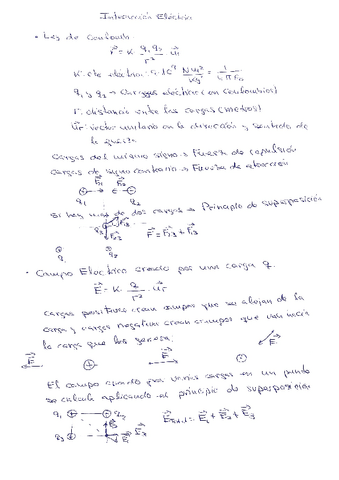 Interacción Eléctrica
• Ley de Coulomb
F = K · q₁ q₂ / r² · ur
K: cte eléctrica: 9·10⁹ = 1 / 4πε₀
q₁ y q₂ → Cargas eléctricas (en Coulombios)
r: distancia entre las cargas (metros)
ur: vector unitario en la dirección y sentido de
la
Cargas del mismo signo → Fuerza de repulsión
Cargas de signo contrario → Fuerza de atracción
F₁ F₂
q₁ q₂
Si hay más de dos cargas → Principio de superposición
q₃
q₁ q₂
• Campo Eléctrico creado por una carga q.
E = K · q / r² · ur
Cargas positivas crean campos que se alejan de la
carga y cargas negativas crean campos que van hacia
la carga que los genera.
E E E
El campo creado por varias cargas en un punto
se calcula aplicando el principio de superposición
q₁ q₂ = E₁ + E₂ + E₃
q₃